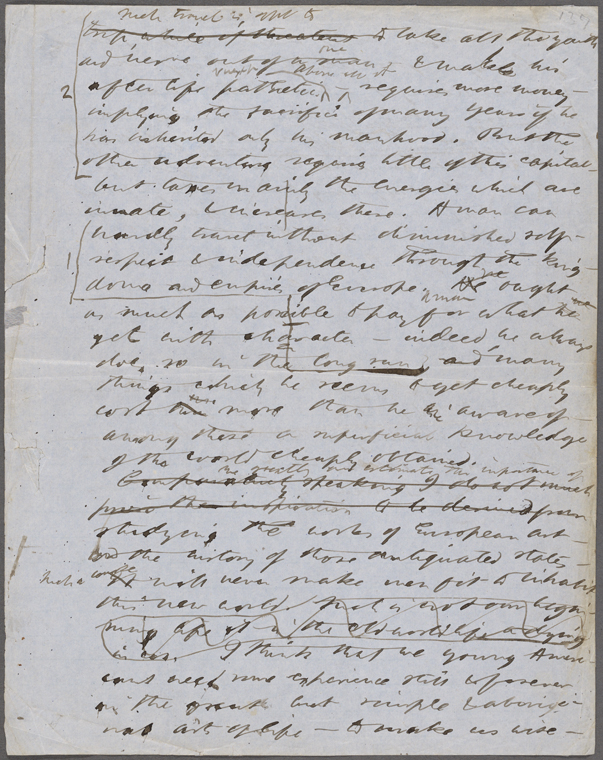 Such travel is apt to
to take all the youth
and nerve out of a man & make his
one
after life pathetic requires more money—
above all it
2
implying the sacrifice of many years if he
has inherited only his manhood. But the
other adventure requires little of this capital—
but taxes mainly the energies which are
innate, & increases these. A man can
hardly travel without diminished self-
1
respect & independence through the king-
doms and empires of Europe. He ought
A man
as much as possible to pay for what he
gets with character — indeed he always
does so in the long run, and many
things which he seems to get cheaply
cost more than he is aware of—
among these a superficial knowledge
of the world cheaply obtained.
we greatly the importance of
speaking I do not much
the inspiration to be derived from
studying the works of European art—
and the history of those antiquated states—
Such a
will never make men fit to inhabit
this new world. Such is not our begin-
ning of the old world
I think that we young Ameri-
cans need some experience still & forever
in the great but simple & aborigi-
nal arts of life — to make us wise—